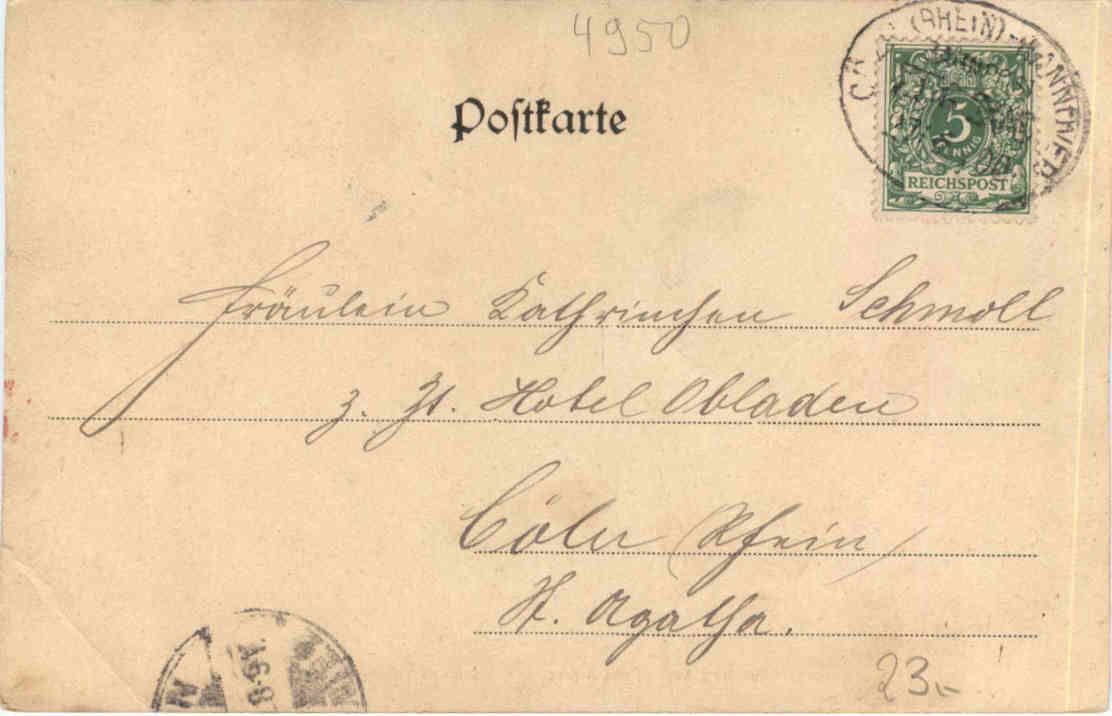 4950
Postkarte
(RHEIN)-HANNOVER
5
PFENNIG
REICHSPOST
Fräulein Kathrinchen Schmoll
z. Zt. Hotel Obladen
Cöln (Rhein)
St. Agatha.
23.-